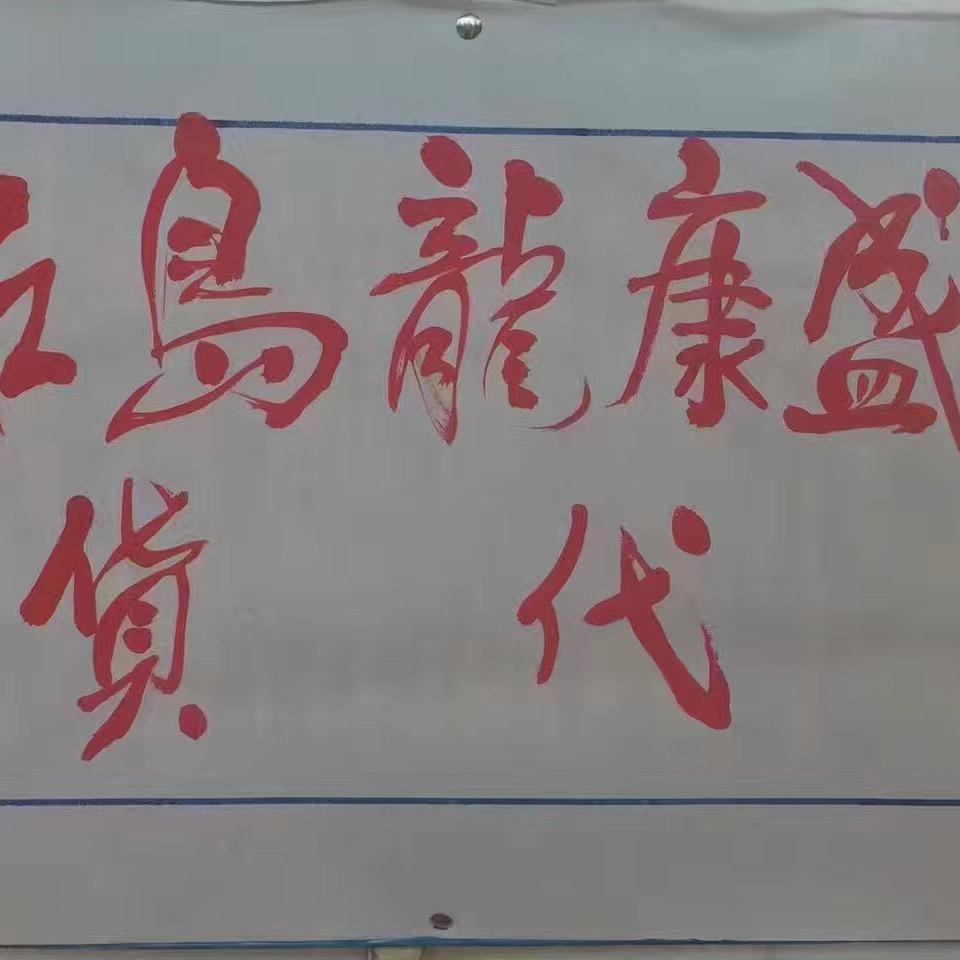 島龍康盛
貨代